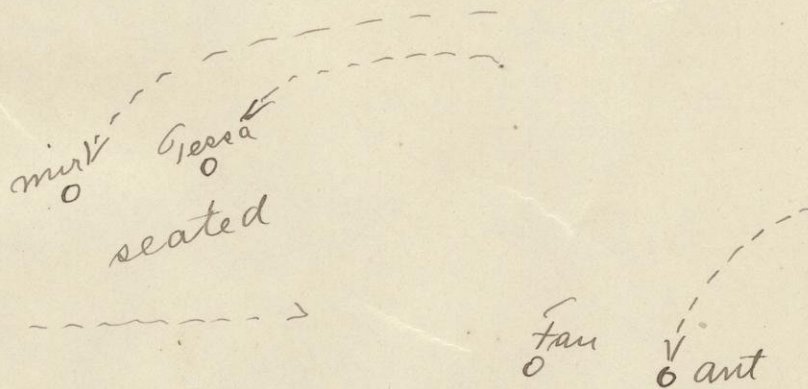 mir
Tessa
seated
Fan
ant